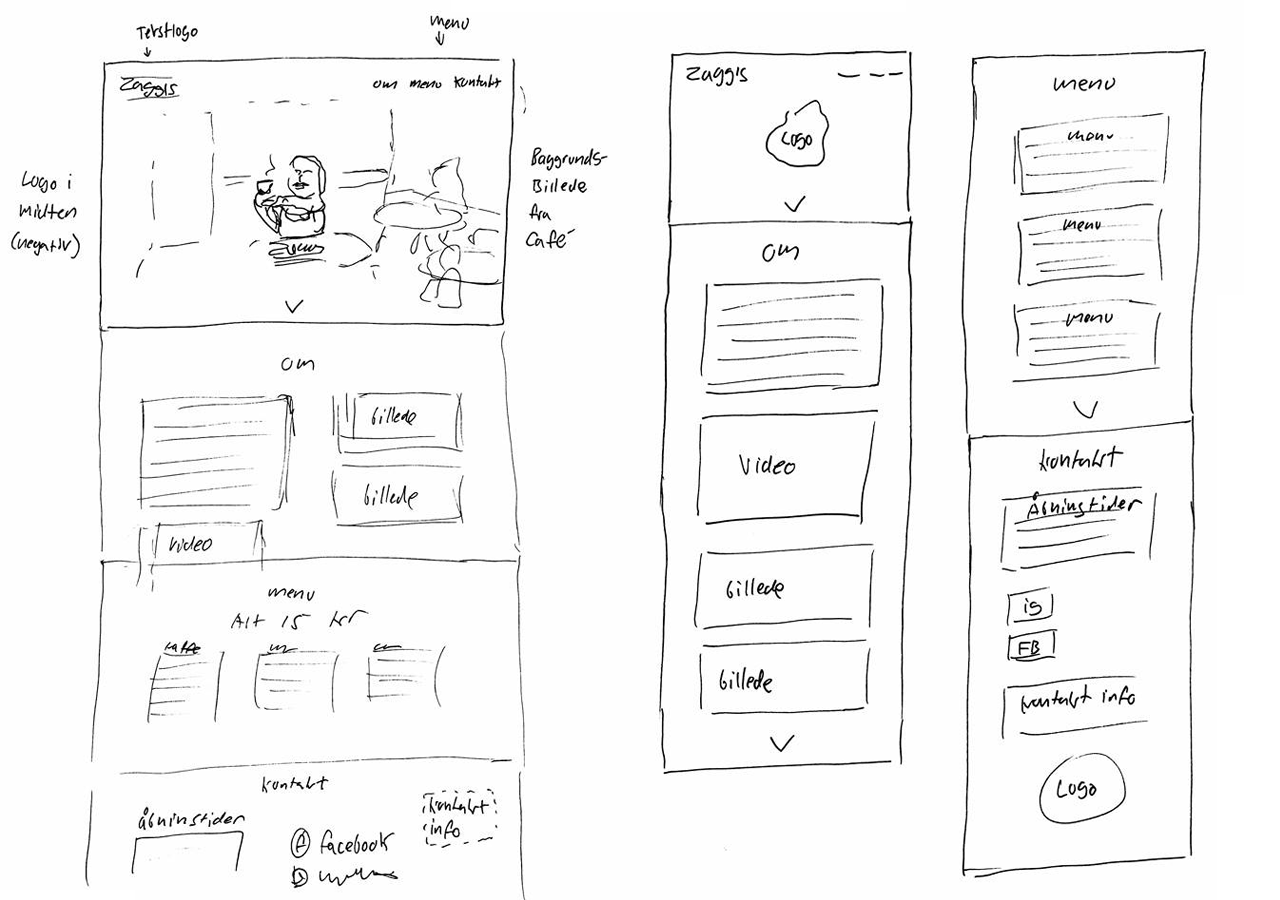 Tekstlogo
menu
Zaggis
om menu kontakt
Logo i
midten
(negativ)
Baggrunds-
Billede
fra
Café
om
billede
billede
video
menu
Alt 15 kr
kaffe
kontakt
åbningstider
facebook
kontakt
info
Zaggis
Logo
om
Video
billede
billede
menu
menu
menu
menu
kontakt
Åbningstider
IG
FB
kontakt info
Logo